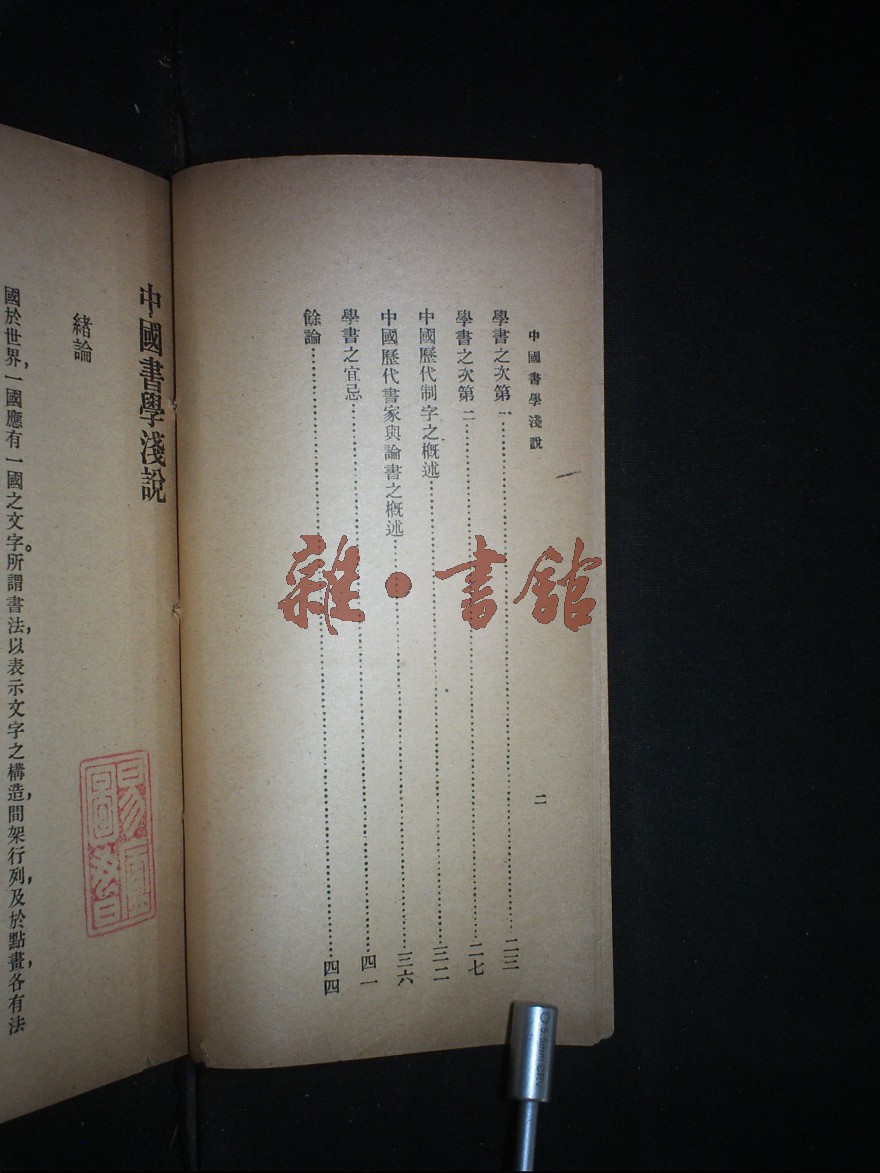 中國書學淺說
二
學書之次第一……二三
學書之次第二……二七
中國歷代制字之概述……三二
中國歷代書家與論書之概述……三六
學書之宜忌……四一
餘論……四四
中國書學淺說
緒論
國於世界，一國應有一國之文字。所謂書法，以表示文字之構造，間架行列，及於點畫，各有法
雜·書館
0.5mm